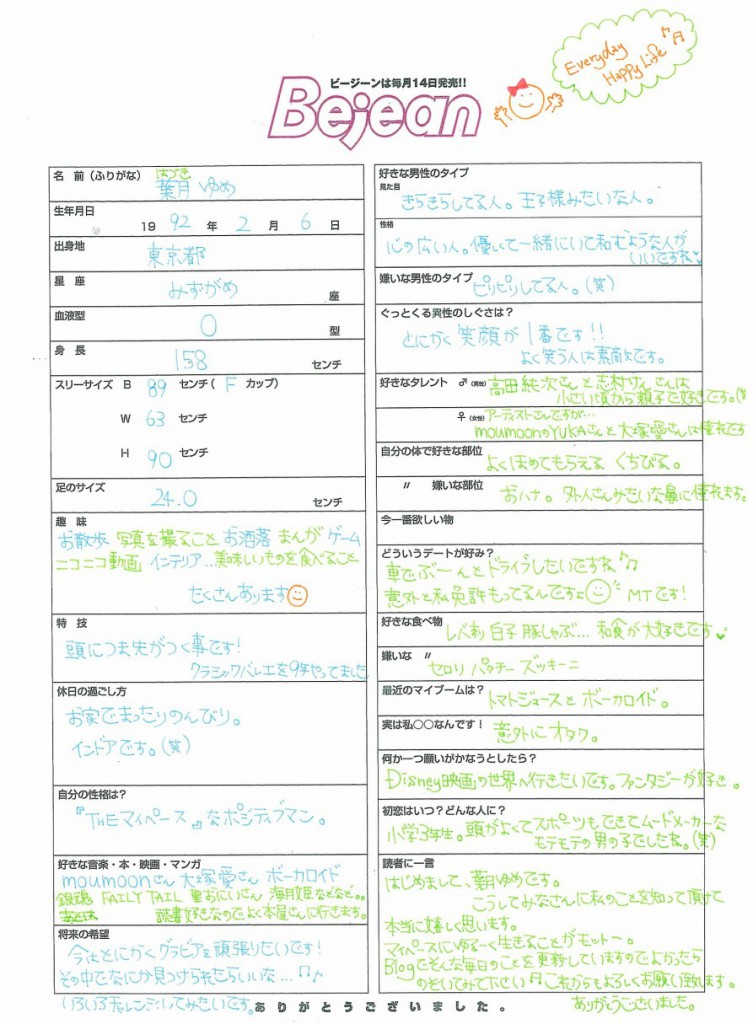 Everyday
Happy Life
ビージーンは毎月14日発売!!
Bejean
名 前(ふりがな) はづき
葉月 ゆめ
生年月日
19 92 年 2 月 6 日
出身地
東京都
星 座
みずがめ 座
血液型
O 型
身 長
158 センチ
スリーサイズ B 89 センチ( F カップ)
W 63 センチ
H 90 センチ
足のサイズ
24.0 センチ
趣 味
お散歩 写真を撮ること お洒落 まんが ゲーム
ニコニコ動画 インテリア...美味しいものを食べること
たくさんあります
特 技
頭につま先がつく事です!
クラシックバレエを9年やってました
休日の過ごし方
お家でまったりのんびり。
インドアです。(笑)
自分の性格は?
『THEマイペース』なポジティブマン。
好きな音楽・本・映画・マンガ
moumoonさん 大塚愛さん ボーカロイド
銀魂 FAILY TAIL 聖おにいさん 海月姫などなど。。
読書好きなのでよく本屋さんに行きます。
将来の希望
今はとにかくグラビアを頑張りたいです!
その中でなにか見つけられたらいいな...♫♪
いろいろチャレンジしてみたいです。
好きな男性のタイプ
見た目
きらきらしてる人。王子様みたいな人。
性格
心の広い人。優しくて一緒にいて和むような人が
いいですね♥
嫌いな男性のタイプ
ピリピリしてる人。(笑)
ぐっとくる異性のしぐさは?
とにかく笑顔が1番です!!
よく笑う人は素敵です。
好きなタレント ♂(男性) 高田純次さんと志村けんさんは
小さい頃から親子で好きです。(笑
♀(女性) アーティストさんですが...
moumoonのYUKAさんと大塚愛さんは憧れです
自分の体で好きな部位
よくほめてもらえる くちびる。
〃 嫌いな部位
おハナ。外人さんみたいな鼻に憧れます。
今一番欲しい物
どういうデートが好み?
車でぶーんとドライブしたいですね♪♫
意外と私免許もってるんですよ MTです!
好きな食べ物
レバ刺 白子 豚しゃぶ... 和食が大好きです♥
嫌いな 〃
セロリ パクチー ズッキーニ
最近のマイブームは?
トマトジュースとボーカロイド。
実は私○○なんです!
意外にオタク。
何か一つ願いがかなうとしたら?
Disney映画の世界へ行きたいです。ファンタジーが好き。
初恋はいつ?どんな人に?
小学3年生。頭がよくてスポーツもできてムードメーカーな
モテモテの男の子でしたね。(笑)
読者に一言
はじめまして、葉月ゆめです。
こうしてみなさんに私のことを知って頂けて
本当に嬉しく思います。
マイペースにゆるーく生きることがモットー。
Blogでそんな毎日のことを更新していますのでよかったら
のぞいてみて下さい♫これからもよろしくお願い致します。
ありがとうございました。
ありがとうございました。